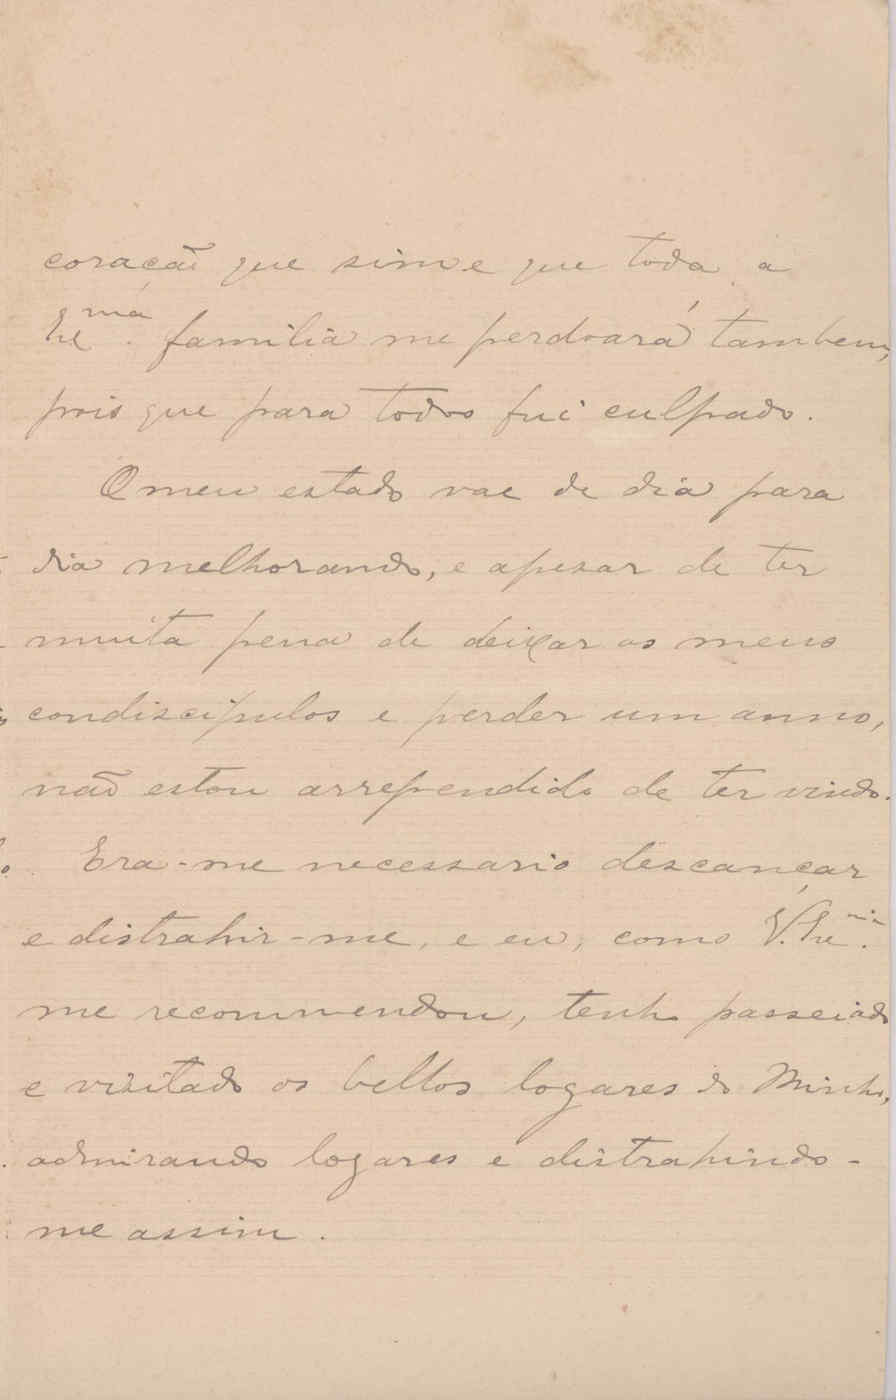 coração que sim e que toda a
Exma. familia me perdoará tambem,
pois que para todos fui culpado.
O meu estado vae de dia para
dia melhorando, e apezar de ter
muita pena de deixar os meus
condiscipulos e perder um anno,
não estou arrependido de ter vindo.
Era-me necessario descançar
e distrahir-me, e eu, como V. Exª.
me recommendou, tenho passeiado
e visitado os bellos logares do Minho,
admirando logares e distrahindo-
me assim.